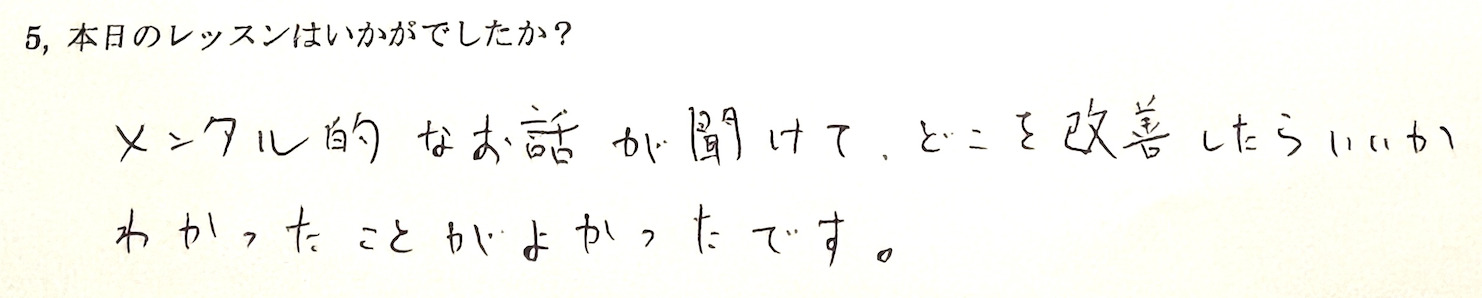 5, 本日のレッスンはいかがでしたか?
メンタル的なお話が聞けて、どこを改善したらいいか
わかったことがよかったです。